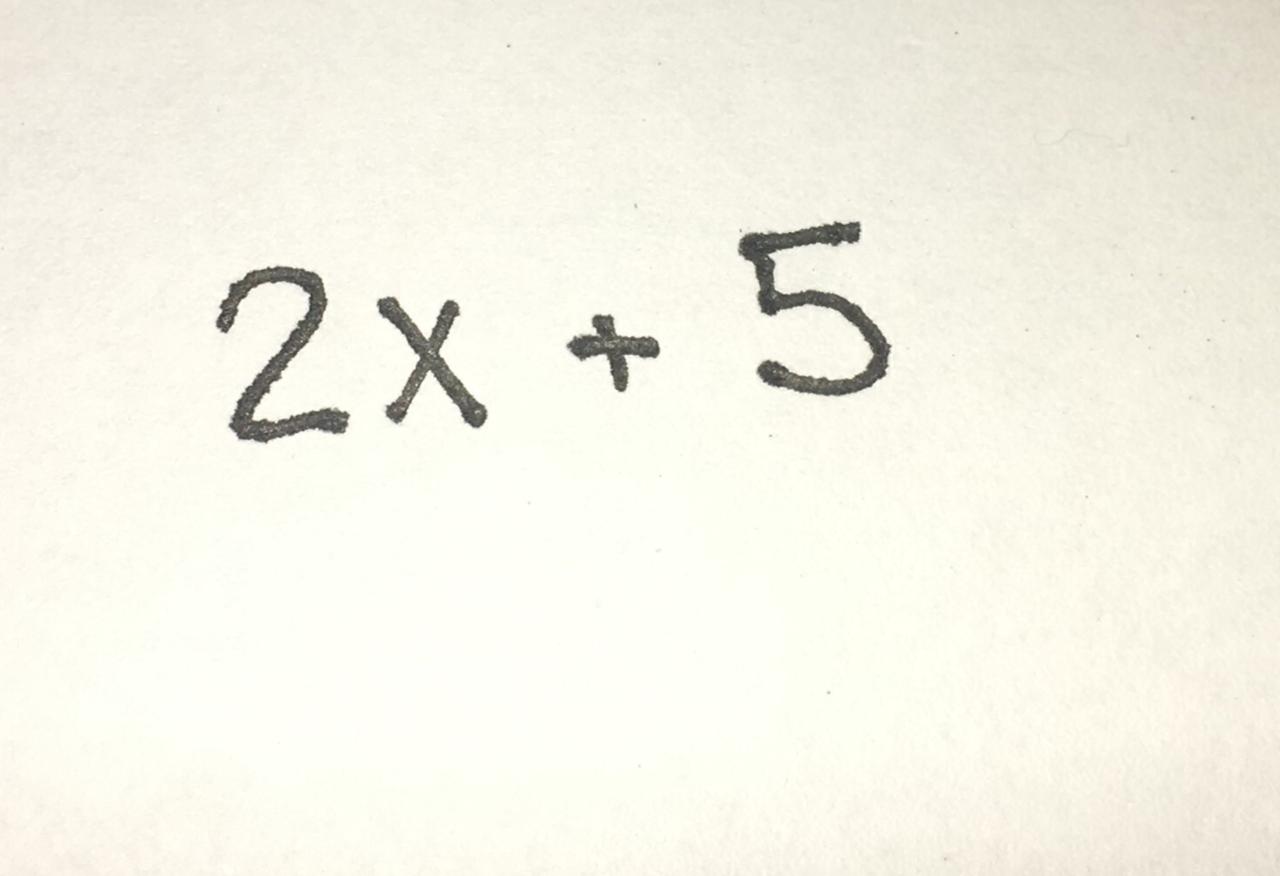 2x + 5